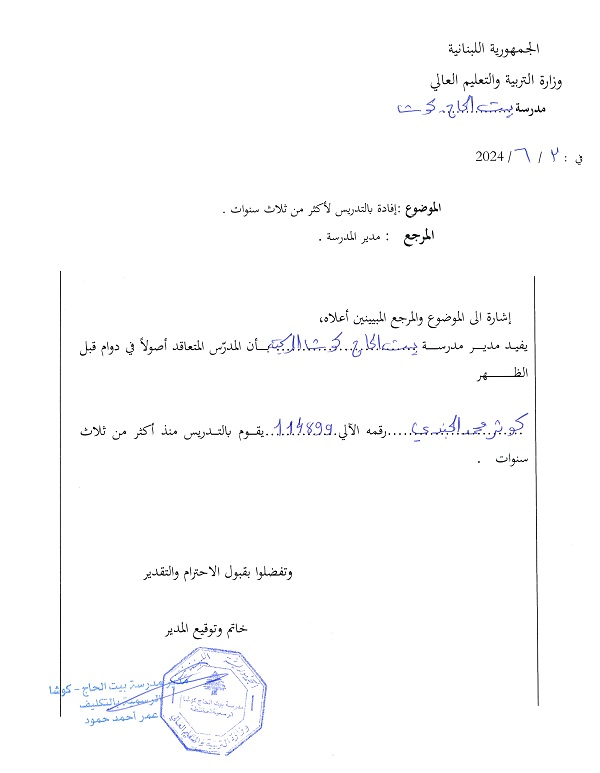 الجمهورية اللبنانية
وزارة التربية والتعليم العالي
مدرسة بيت الحاج. كوشا
في : ٢ / ٦ / 2024
الموضوع :إفادة بالتدريس لأكثر من ثلاث سنوات .
المرجع : مدير المدرسة .
إشارة الى الموضوع والمرجع المبينين أعلاه،
يفيد مدير مدرسة بيت الحاج. كوشا الرسمية بأن المدرّس المتعاقد أصولاً في دوام قبل
الظهر
كوثر محمد الجندي.....رقمه الآلي 114899 يقوم بالتدريس منذ أكثر من ثلاث
سنوات .
وتفضلوا بقبول الاحترام والتقدير
خاتم وتوقيع المدير
مدير مدرسة بيت الحاج - كوشا
الرسمية بالتكليف
عمر أحمد حمود
الجمهورية اللبنانية
مدرسة بيت الحاج كوشا
الرسمية المختلطة
وزارة التربية والتعليم العالي